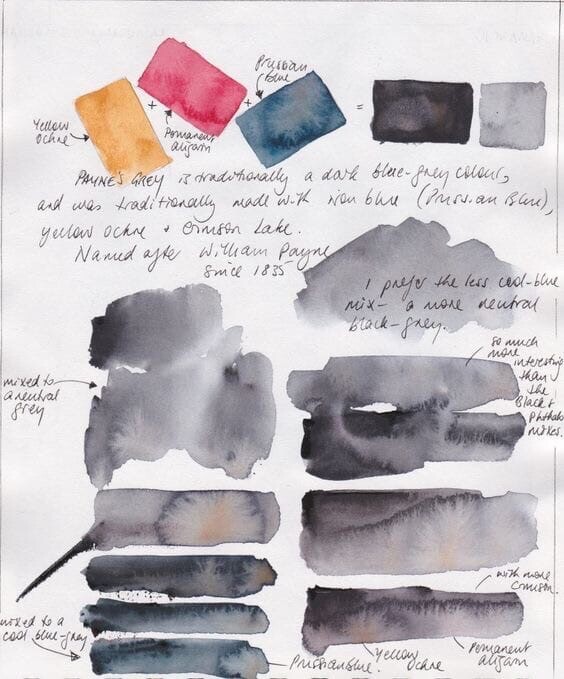 Prussian
blue
Yellow
ochre
+
+
=
Permanent
alizarin
PAYNE'S GREY is traditionally a dark blue-grey colour,
and was traditionally made with iron blue (Prussian Blue),
yellow ochre + Crimson Lake.
Named after William Payne
since 1835
I prefer the less cool-blue
mix- a more neutral
black-grey.
so much
more
interesting
than
the
Black &
Phthalo
mixes.
mixed to
a neutral
grey
with more
Crimson.
mixed to a
cool blue-grey
Prussian blue.
Yellow
Ochre
Permanent
alizarin